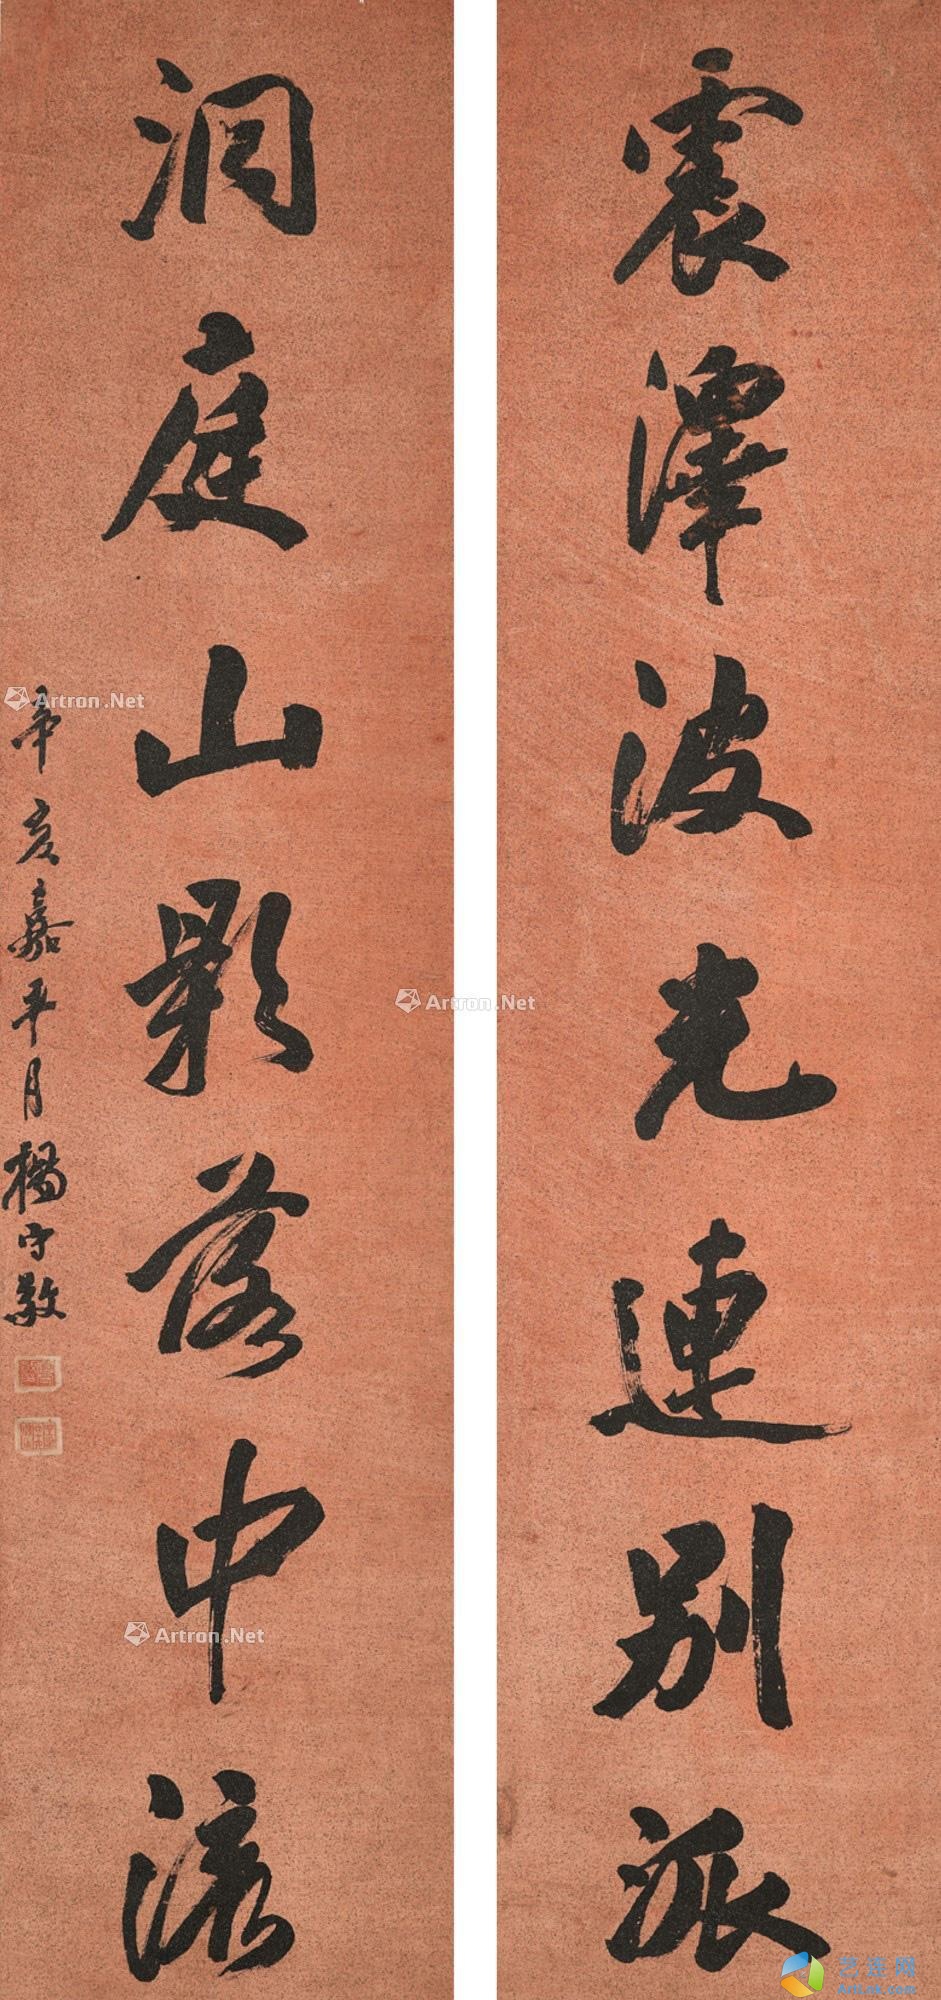 震澤波光連別派
洞庭山影落中流
辛亥嘉平月楊守敬
Artron.Net
Artron.Net
Artron.Net
艺连网